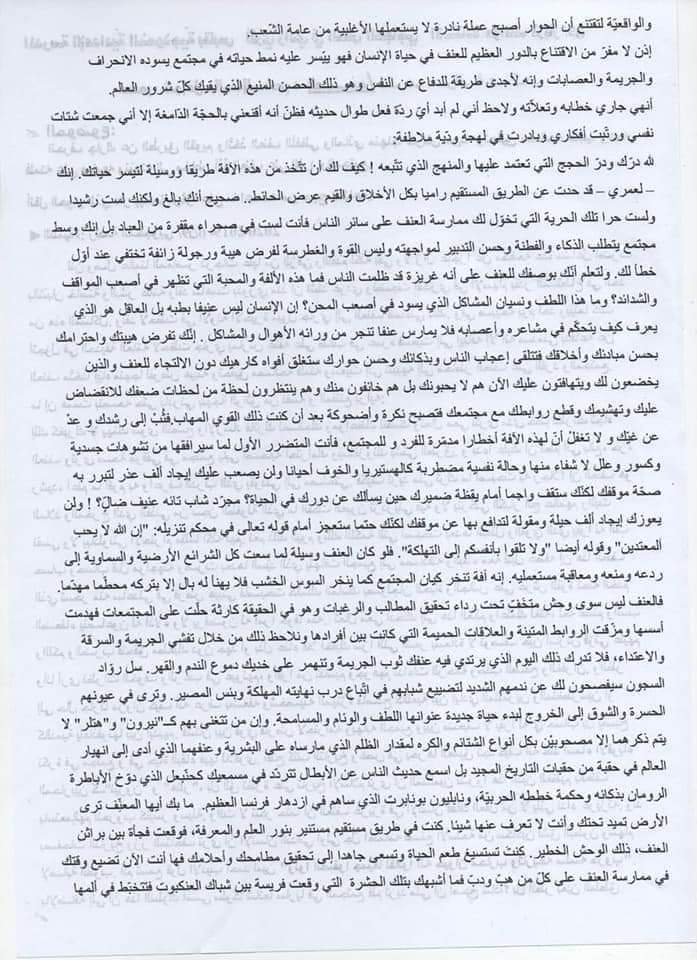 والواقعيّة لتقتنع أن الحوار أصبح عملة نادرة لا يستعملها الأغلبية من عامة الشّعب.
إذن لا مفرّ من الاقتناع بالدور العظيم للعنف في حياة الإنسان فهو ييّسر عليه نمط حياته في مجتمع يسوده الانحراف
والجريمة والعصابات وإنه لأجدى طريقة للدفاع عن النفس وهو ذلك الحصن المنيع الذي يقيك كلّ شرور العالم.
أنهي جاري خطابه وتعلّاته ولاحظ أني لم أبد أيّ ردّة فعل طوال حديثه فظنّ أنه أقنعني بالحجّة الدّامغة إلا أني جمعت شتات
نفسي ورتّبت أفكاري وبادرت في لهجة وديّة ملاطفة:
لله درّك ودرّ الحجج التي تعتمد عليها والمنهج الذي تتّبعه ! كيف لك أن تتّخذ من هذه الآفة طريقا ووسيلة لتيسر حياتك. إنك
– لعمري – قد حدت عن الطريق المستقيم راميا بكل الأخلاق والقيم عرض الحائط.. صحيح أنك بالغ ولكنك لست رشيدا
ولست حرا تلك الحرية التي تخوّل لك ممارسة العنف على سائر الناس فأنت لست في صحراء مقفرة من العباد بل إنك وسط
مجتمع يتطلب الذكاء والفطنة وحسن التدبير لمواجهته وليس القوة والغطرسة لفرض هيبة ورجولة زائفة تختفي عند أوّل
خطأ لك. ولتعلم أنّك بوصفك للعنف على أنه غريزة قد ظلمت الناس فما هذه الألفة والمحبة التي تظهر في أصعب المواقف
والشدائد؟ وما هذا اللطف ونسيان المشاكل الذي يسود في أصعب المحن؟ إن الإنسان ليس عنيفا بطبه بل العاقل هو الذي
يعرف كيف يتحكّم في مشاعره وأعصابه فلا يمارس عنفا تنجر من ورائه الأهوال والمشاكل . إنّك تفرض هيبتك واحترامك
بحسن مبادئك وأخلاقك فتتلقى إعجاب الناس وبذكائك وحسن حوارك ستغلق أفواه كارهيك دون الالتجاء للعنف والذين
يخضعون لك ويتهافتون عليك الآن هم لا يحبونك بل هم خائفون منك وهم ينتظرون لحظة من لحظات ضعفك للانقضاض
عليك وتهشيمك وقطع روابطك مع مجتمعك فتصبح نكرة وأضحوكة بعد أن كنت ذلك القوي المهاب.فتُبْ إلى رشدك و عدْ
عن غيّك و لا تغفلْ أنّ لهذه الآفة أخطارا مدمّرة للفرد و للمجتمع، فأنت المتضرر الأول لما سيرافقها من تشوهات جسدية
وكسور وعلل لا شفاء منها وحالة نفسية مضطربة كالهستيريا والخوف أحيانا ولن يصعب عليك إيجاد ألف عذر لتبرر به
صحّة موقفك لكنّك ستقف واجما أمام يقظة ضميرك حين يسألك عن دورك في الحياة؟ مجرّد شاب تائه عنيف ضالّ؟ ! ولن
يعوزك إيجاد ألف حيلة ومقولة لتدافع بها عن موقفك لكنّك حتما ستعجز أمام قوله تعالى في محكم تنزيله: "إن الله لا يحب
المعتدين" وقوله أيضا "ولا تلقوا بأنفسكم إلى التهلكة". فلو كان العنف وسيلة لما سعت كل الشرائع الأرضية والسماوية إلى
ردعه ومنعه ومعاقبة مستعمليه. إنه آفة تنخر كيان المجتمع كما ينخر السوس الخشب فلا يهنأ له بال إلا بتركه محطّما مهدّما.
فالعنف ليس سوى وحش متخفٍّ تحت رداء تحقيق المطالب والرغبات وهو في الحقيقة كارثة حلّت على المجتمعات فهدمت
أسسها ومزّقت الروابط المتينة والعلاقات الحميمة التي كانت بين أفرادها ونلاحظ ذلك من خلال تفشي الجريمة والسرقة
والاعتداء، فلا تدرك ذلك اليوم الذي يرتدي فيه عنفك ثوب الجريمة وتنهمر على خديك دموع الندم والقهر. سل روّاد
السجون سيفصحون لك عن ندمهم الشديد لتضييع شبابهم في اتّباع درب نهايته المهلكة وبئس المصير. وترى في عيونهم
الحسرة والشوق إلى الخروج لبدء حياة جديدة عنوانها اللطف والوئام والمسامحة. وإن من تتغنى بهم كــ"نيرون" و"هتلر" لا
يتم ذكرهما إلا مصحوبيْن بكل أنواع الشتائم والكره لمقدار الظلم الذي مارساه على البشرية وعنفهما الذي أدى إلى انهيار
العالم في حقبة من حقبات التاريخ المجيد بل اسمع حديث الناس عن الأبطال تتردّد في مسمعيك كحنّبعل الذي دوّخ الأباطرة
الرومان بذكائه وحكمة خططه الحربيّة، ونابليون بونابرت الذي ساهم في ازدهار فرنسا العظيم. ما بك أيها المعنّف ترى
الأرض تميد تحتك وأنت لا تعرف عنها شيئا. كنت في طريق مستقيم مستنير بنور العلم والمعرفة، فوقعت فجأة بين براثن
العنف، ذلك الوحش الخطير. كنتَ تستسيغ طعم الحياة وتسعى جاهدا إلى تحقيق مطامحك وأحلامك فها أنت الآن تضيع وقتك
في ممارسة العنف على كلّ من هبّ ودبّ فما أشبهك بتلك الحشرة التي وقعت فريسة بين شباك العنكبوت فتتخبّط في ألمها